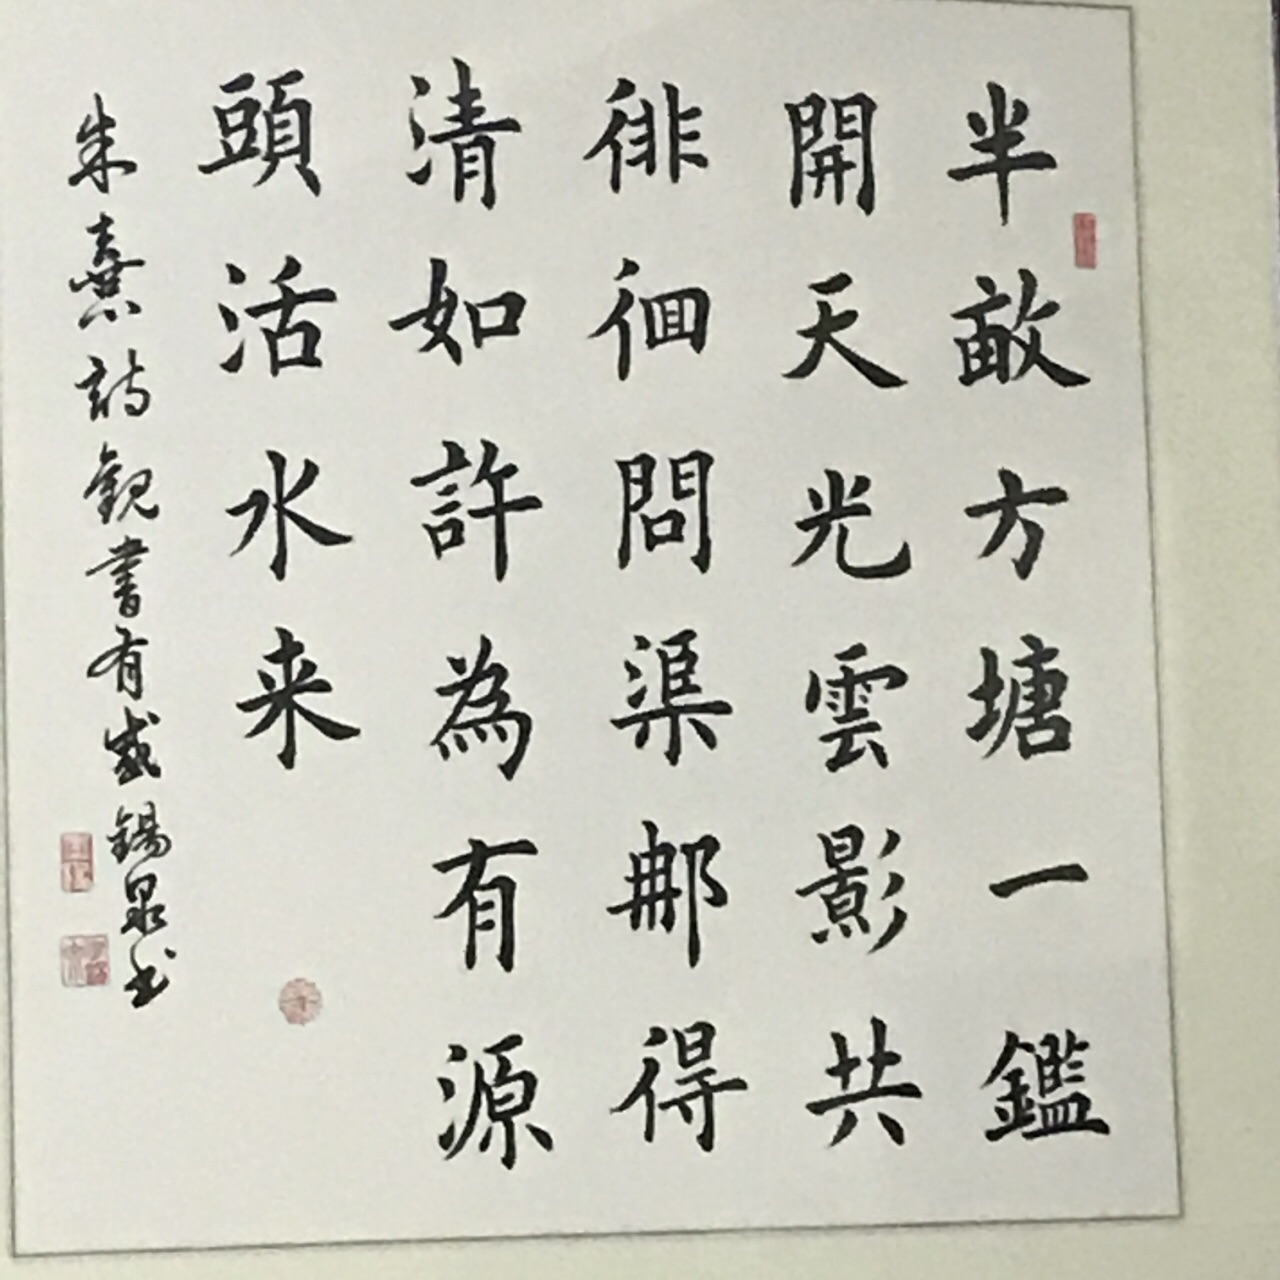 半畝方塘一鑑
開天光雲影共
徘徊問渠那得
清如許為有源
頭活水来
朱熹詩觀書有感錫泉书